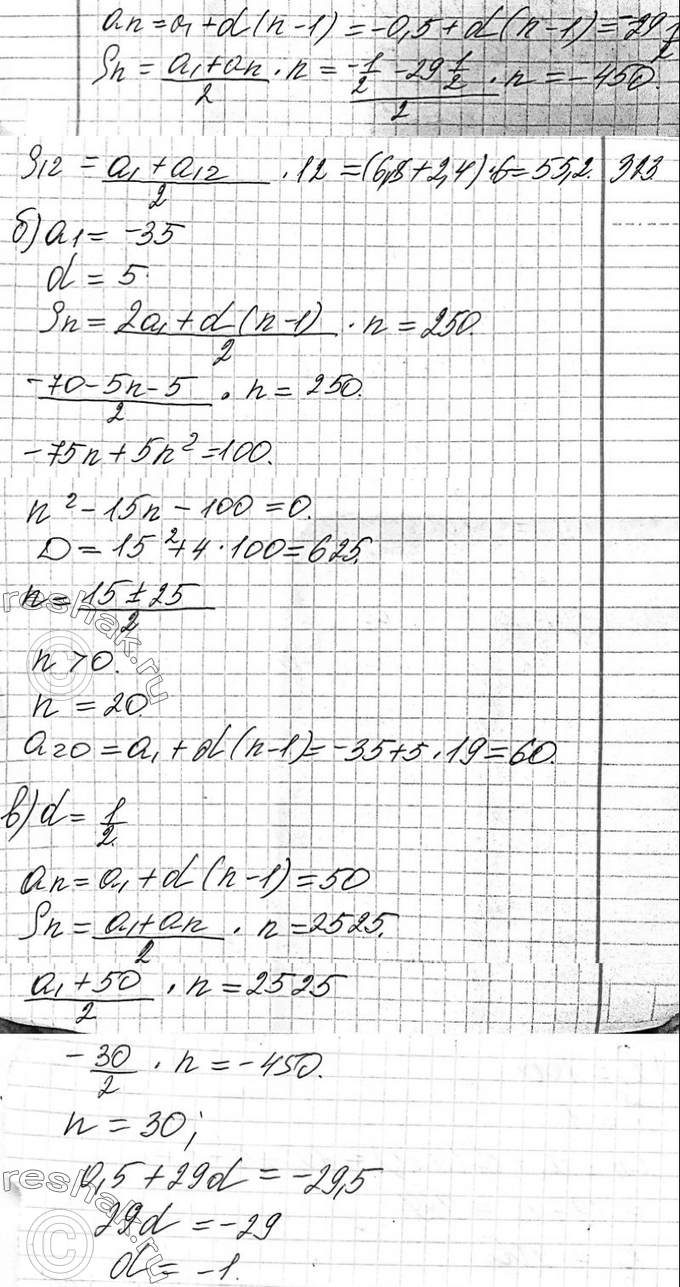 an = a₁ + d(n-1) = -0,5 + d(n-1) = -29 1/2
Sn = (a₁ + an)/2 · n = (-1/2 - 29 1/2)/2 · n = -450.
S₁₂ = (a₁ + a₁₂)/2 · 12 = (6,8 + 2,4) · 6 = 55,2. 323
б) a₁ = -35
d = 5
Sn = (2a₁ + d(n-1))/2 · n = 250.
(-70 - 5n - 5)/2 · n = 250.
-75n + 5n² = 100.
n² - 15n - 100 = 0.
D = 15² + 4 · 100 = 625.
n = (15 ± 25)/2
n > 0.
n = 20.
a₂₀ = a₁ + d(n-1) = -35 + 5 · 19 = 60.
в) d = 1/2.
an = a₁ + d(n-1) = 50
Sn = (a₁ + an)/2 · n = 2525.
(a₁ + 50)/2 · n = 2525
-30/2 · n = -450.
n = 30;
0,5 + 29d = -29,5
29d = -29
d = -1.
reshak.ru
reshak.ru